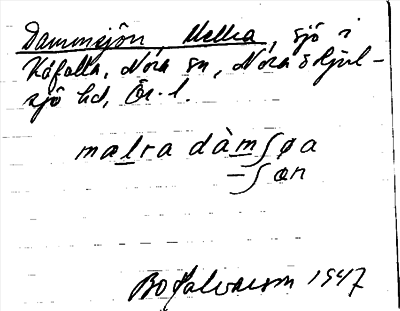 Dammsjön, Mellra, sjö i
Kåfalla, Nora sn, Nora o Hjul-
sjö hd, Ör. l.
malra dàmʃøa
–ʃøn
Bo Halvarson 1947